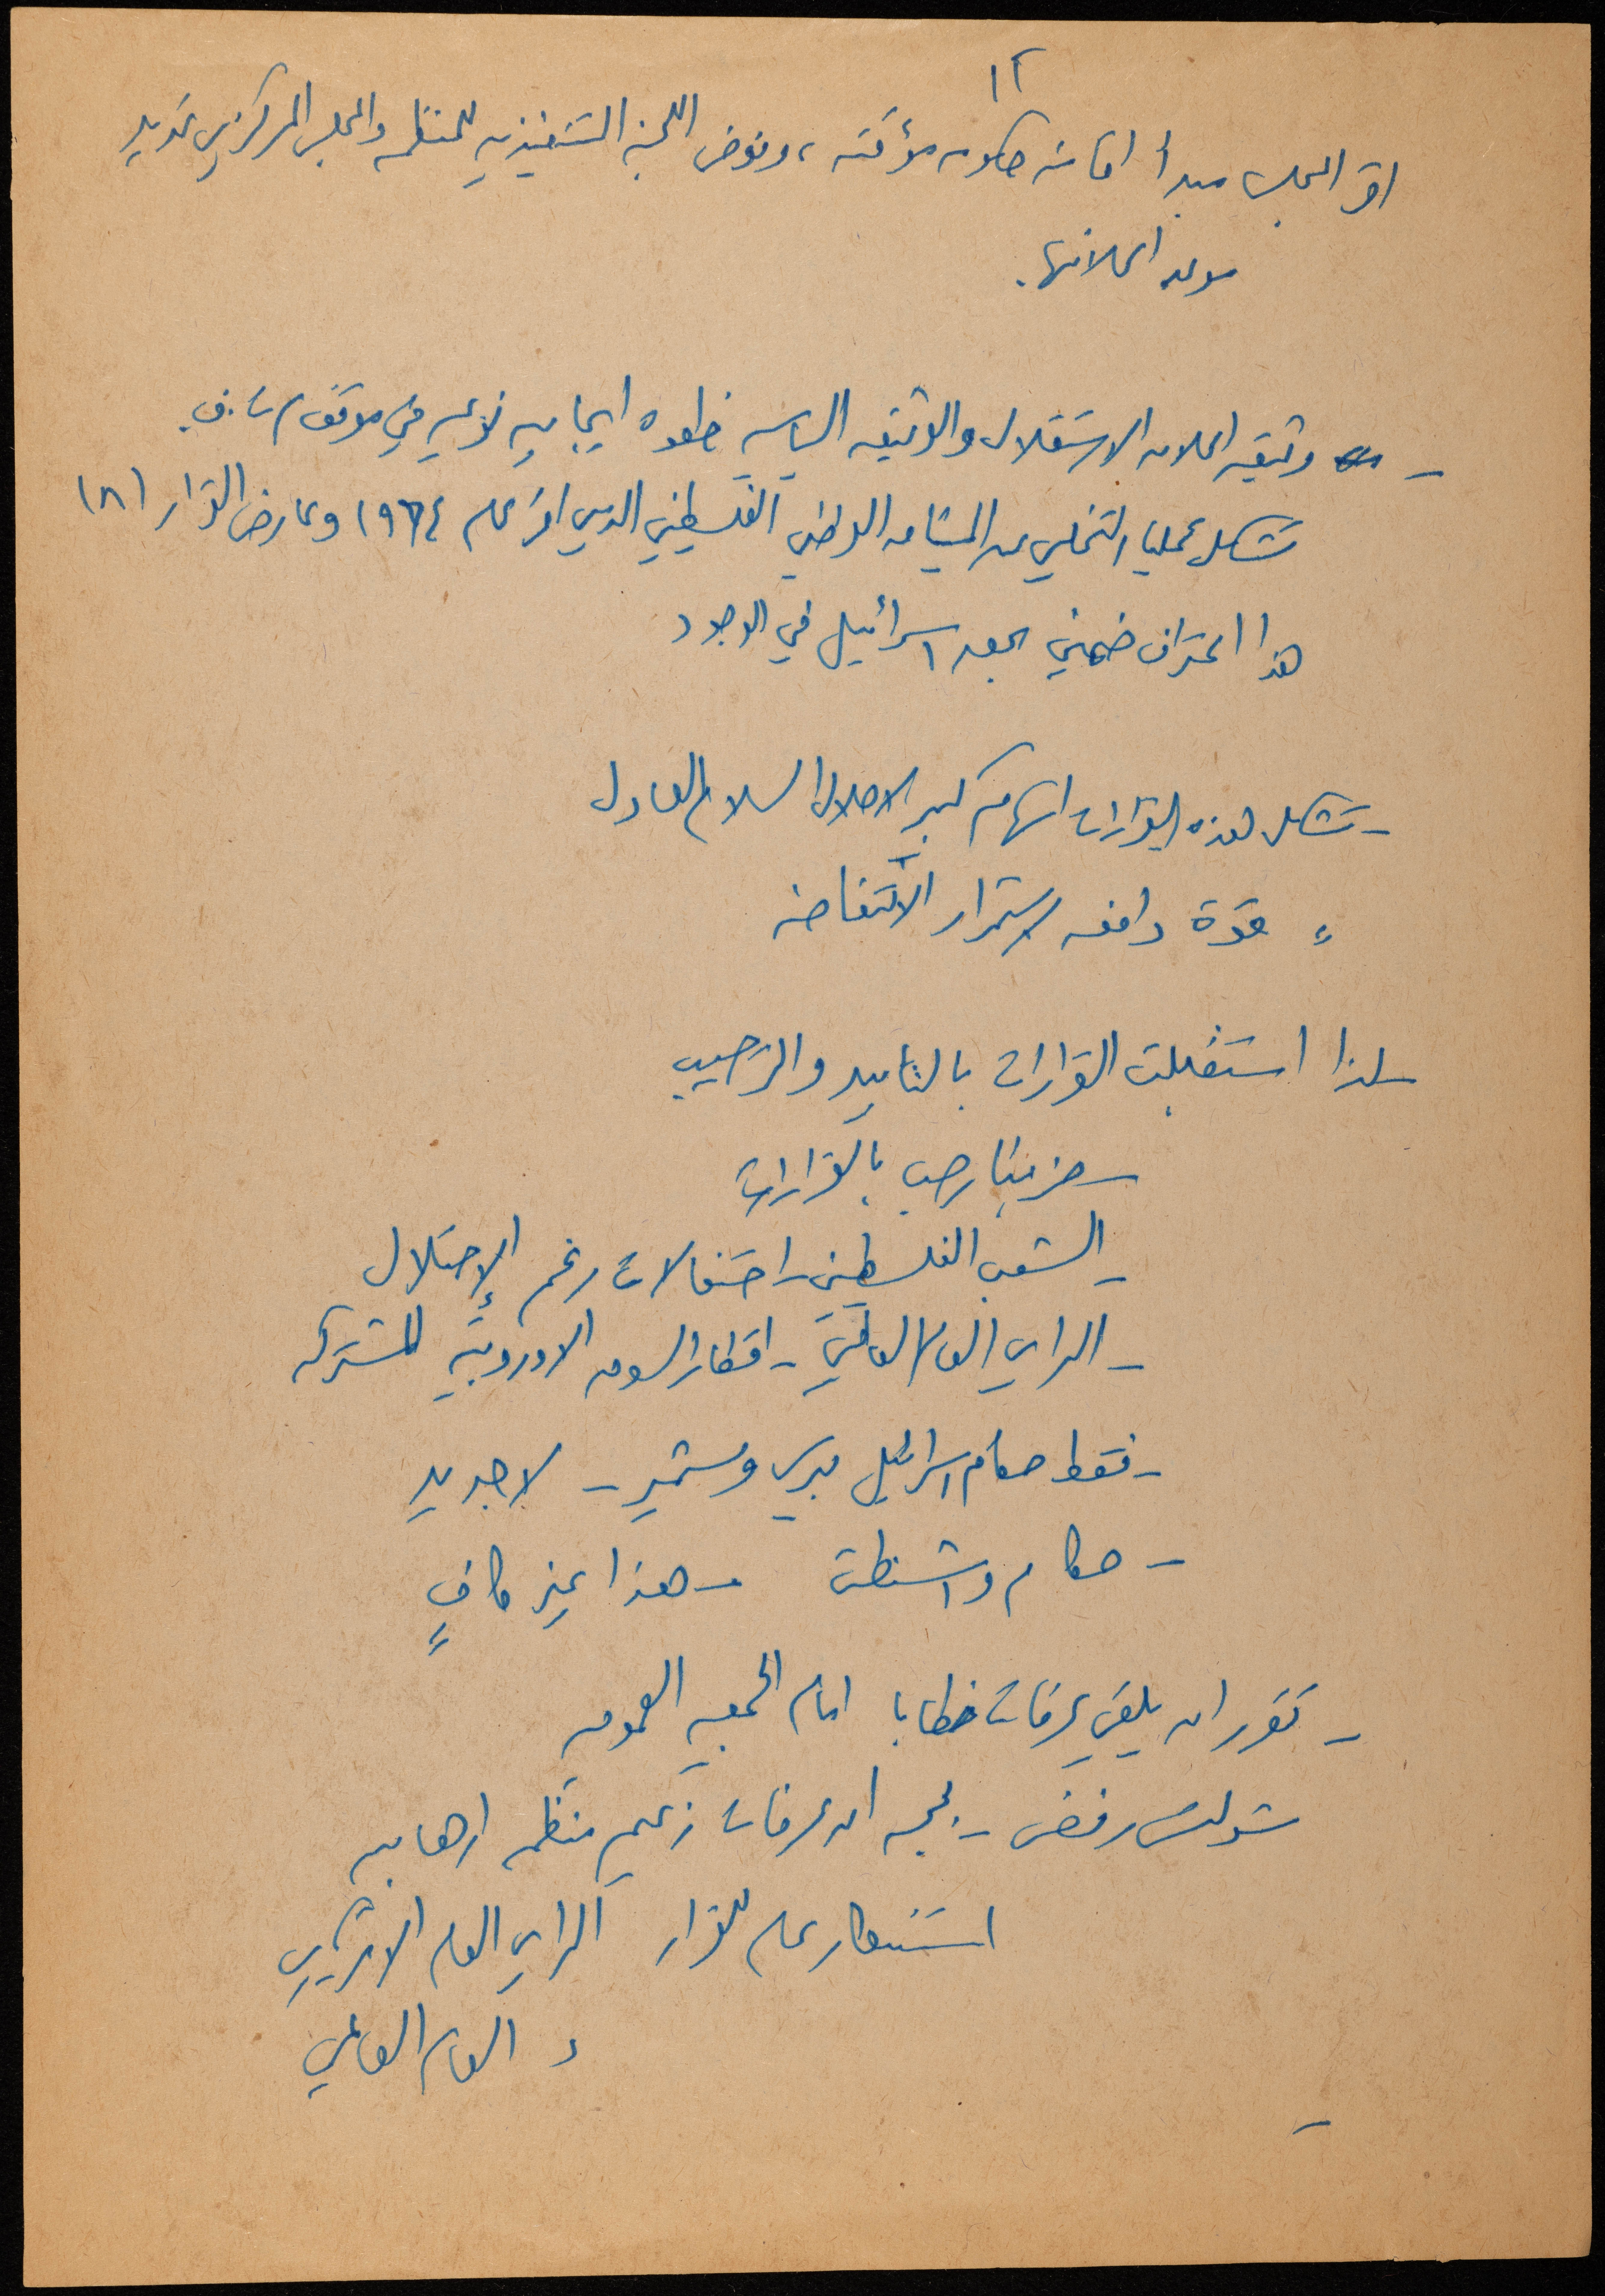 ١٢
اقر المجلس مبدأ اقامة حكومه مؤقته، وفوض اللجنه التنفيذيه للمنظمه والمجلس المركزي تحديد
موعد اعلانها.
- وثيقه اعلان الاستقلال والوثيقه السياسيه خطوه ايجابيه نوعيه في موقف م.ت.ف.
تشكل عمليا التخلي عن الميثاق الوطني الفلسطيني الذي اقر عام ١٩٦٤ وعارض القرار (١٨١)
هذا اعتراف ضمني بحق اسرائيل في الوجود
- تشكل هذه القرارات اسهام كبير لاحلال السلام العادل
" قوة دافعه لاستمرار الانتفاضه
- لذا استقبلت القرارات بالتاييد والترحيب
- حزبنا رحب بالقرارات
- الشعب الفلسطيني - احتفالات رغم الإحتلال
- الراي العام العالمي - اقطار السوق الاوروبية المشتركه
- فقط حكام اسرائيل بيرس وشمير - لا جديد
- حكام واشنطن - هذا غير كافٍ
- تقرر ان يلقي عرفات خطابا امام الجمعيه العموميه
شولتس رفض - بحجه ان عرفات زعيم منظمه ارهابيه
استنكار عام للقرار الراي العام الامريكي
" العام العالمي
-